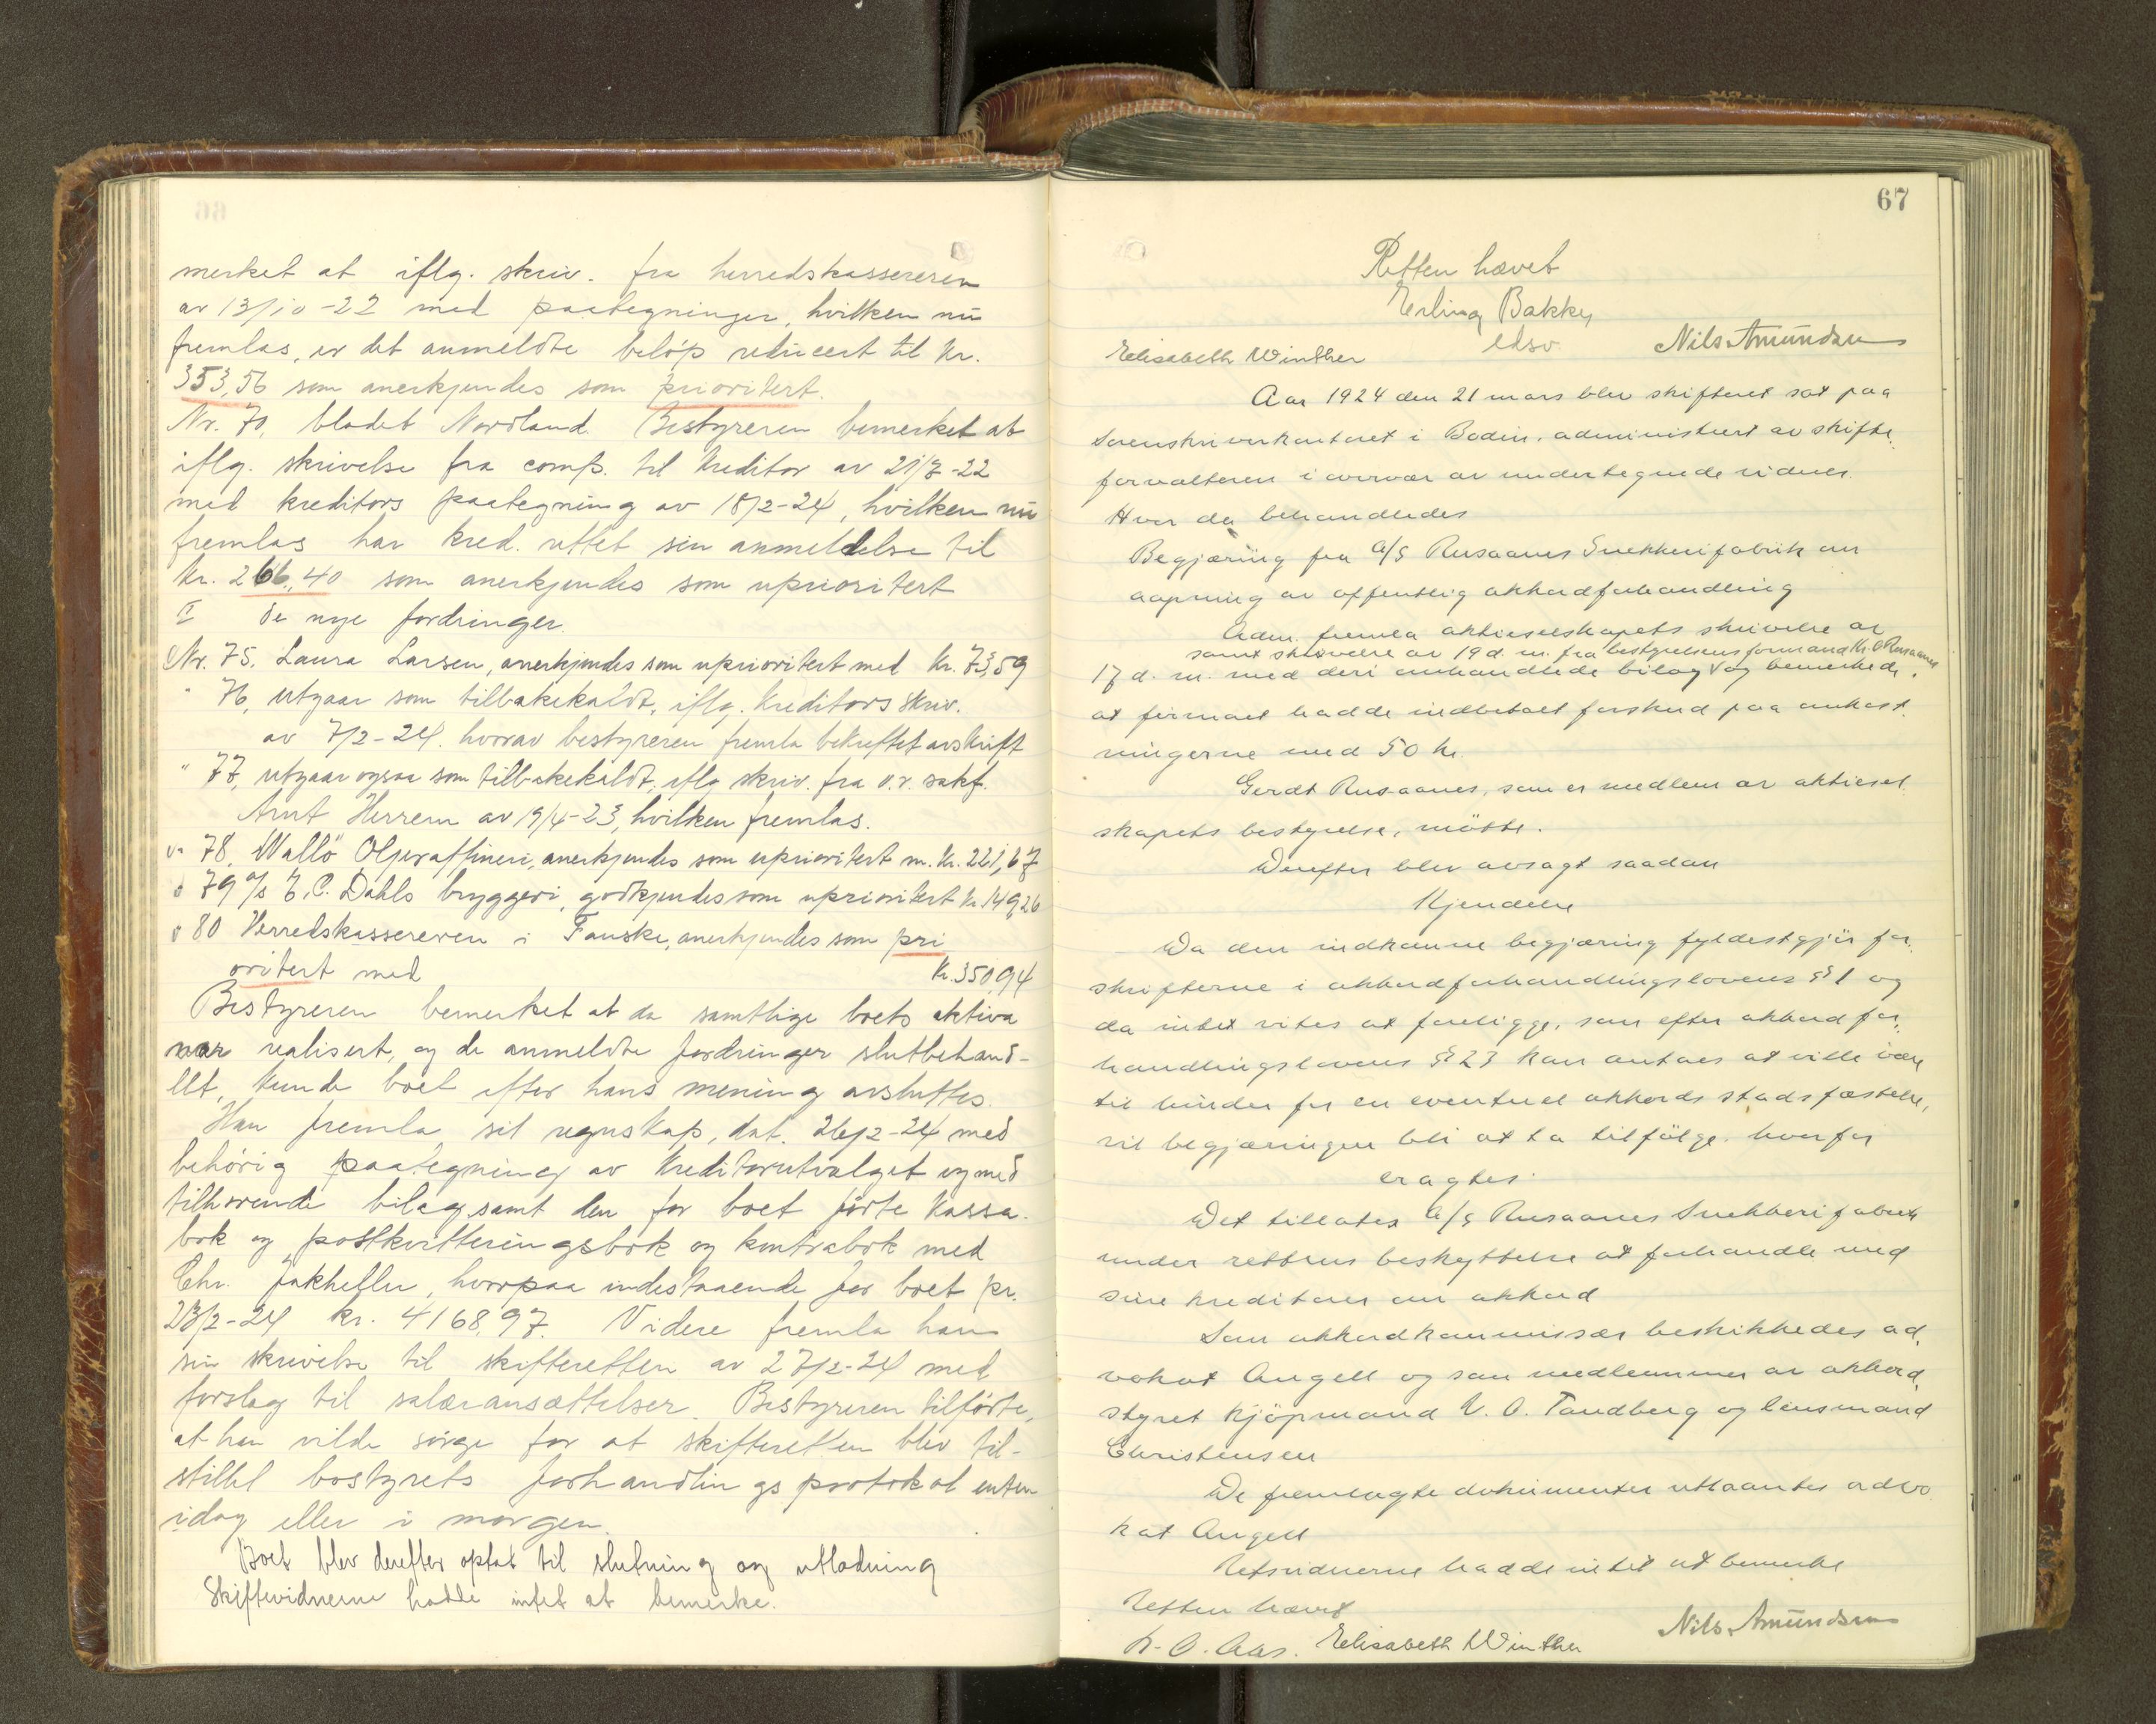 merket at iflg. skriv. fra herredskassereren
av 13/10-22 med paategninger, hvilken nu
fremlas, er det anmeldte beløp reducert til kr.
353,56 som anerkjendes som prioritert.
Nr. 70, bladet Nordland. Bestyreren bemerket at
iflg. skrivelse fra comp. til kreditor av 21/7-22
med kreditors paategning av 18/2-24, hvilken nu
fremlas har kred. rettet sin anmeldelse til
kr. 266,40 som anerkjendes som uprioritert
II De nye fordringer.
Nr. 75, Laura Larsen, anerkjendes som uprioritert med kr. 73,59
" 76, utgaar som tilbakekaldt, iflg. kreditors skriv.
av 7/2-24. hvorav bestyreren fremla bekræftet avskrift
" 77, utgaar ogsaa som tilbakekaldt, iflg skriv. fra o.r. sakf.
Arnt Herrem av 19/4-23, hvilken fremlas.
" 78, Wallö Oljeraffineri, anerkjendes som uprioritert m. kr. 221,67
" 79 A/S E.C. Dahls bryggeri, godkjendes som uprioritert kr. 149,26
" 80 Herredskassereren i Fauske, anerkjendes som pri
oritert med kr. 350,94
Bestyreren bemerket at da samtlige boets aktiva
var realisert, og de anmeldte fordringer slutbehand-
let, kunde boet efter hans mening avsluttes.
Han fremla sit regnskap, dat. 26/2-24 med
behørig paategning av kreditorutvalget og med
tilhørende bilag, samt den for boet førte kassa-
bok og postkvitteringsbok og kontrabok med
Chr. Jakhelln, hvorpaa indestaaende for boet pr.
23/2-24 kr. 4168,97. Videre fremla han
sin skrivelse til skifteretten av 27/2-24 med
forslag til salæransættelser. Bestyreren tilførte,
at han vilde sørge for at skifteretten blev til-
stillet bostyrets forhandlingsprotokol enten
idag eller i morgen.
Boet blev derefter optat til slutning og utlodning
Skiftevidnerne hadde intet at bemerke.
67
Retten hævet
Erling Bakke
edsv.
Elisabeth Winther Nils Amundsen
Aar 1924 den 21 mars blev skifteret sat paa
Sorenskriverkontoret i Bodin, administrert av skifte-
forvalteren i overvær av undertegnede vidner.
Hvor da behandledes
Begjæring fra A/S Rusaanes Snekkerifabrik om
aapning av offentlig akkordforhandling
Adm. fremla aktieselskapets skrivelse av
samt skrivelse av 19 d. m. fra bestyrelsens formand Kr. O Rusaanes
17 d. m. med deri omhandlede bilag og bemerkede,
at firmaet hadde indbetalt forskud paa omkost-
ningerne med 50 kr.
Gerdt Rusaanes, som er medlem av aktiesel-
skapets bestyrelse, møtte.
Derefter blev avsagt saadan
Kjendelse
Da den indkomne begjæring fyldestgjør for-
skrifterne i akkordforhandlingslovens § 1 og
da intet vites at foreligge, som efter akkordfor-
handlingslovens § 23 kan antaes at ville være
til hinder for en eventuel akkords stadsfæstelse,
vil begjæringen bli at ta tilfølge, hvorfor
eragtes
Det tillates A/S Rusaanes Snekkerifabrik
under rettens beskyttelse at forhandle med
sine kreditorer om akkord
Som akkordkommissær beskikkedes ad-
vokat Angell og som medlemmer av akkord-
styret kjøpmand V. O. Tandberg og lensmand
Christensen
De fremlagte dokumenter utlaantes advo-
kat Angell
Retsvidnerne hadde intet at bemerke
Retten hævet
K. O. Aas. Elisabeth Winther Nils Amundsen